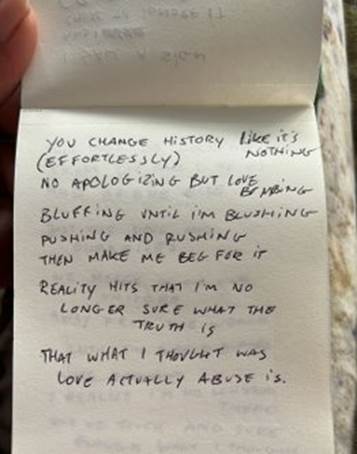 I SAW A SIGN
YOU CHANGE HISTORY LIKE IT'S NOTHING
(EFFORTLESSLY)
NO APOLOGIZING BUT LOVE BOMBING
BLUFFING UNTIL I'M BLUSHING
PUSHING AND RUSHING
THEN MAKE ME BEG FOR IT
REALITY HITS THAT I'M NO
LONGER SURE WHAT THE
TRUTH IS
THAT WHAT I THOUGHT WAS
LOVE ACTUALLY ABUSE IS.